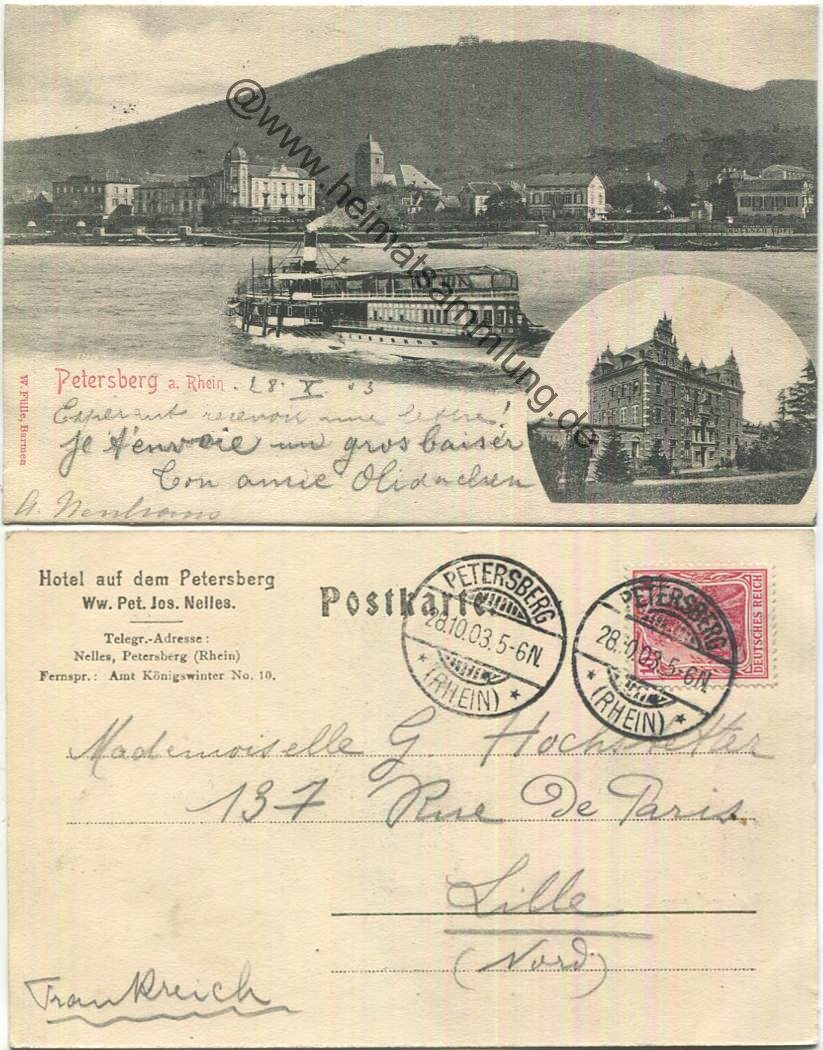 @www.heimatsammlung.de
Petersberg a. Rhein. 28. X 03
W. Fülle, Barmen
Esperant recevoir une lettre!
je t'envoie un gros baiser
Ton amie
A.
Hotel auf dem Petersberg
Ww. Pet. Jos. Nelles.
Telegr.-Adresse:
Nelles, Petersberg (Rhein)
Fernspr.: Amt Königswinter No. 10.
Postkarte.
PETERSBERG
28.10.03.5-6N.
* (RHEIN) *
PETERSBERG
28.10.03.5-6N.
* (RHEIN) *
DEUTSCHES REICH
Mademoiselle G. Hochstetter
137 Rue De Paris.
Lille
(Nord)
Frankreich